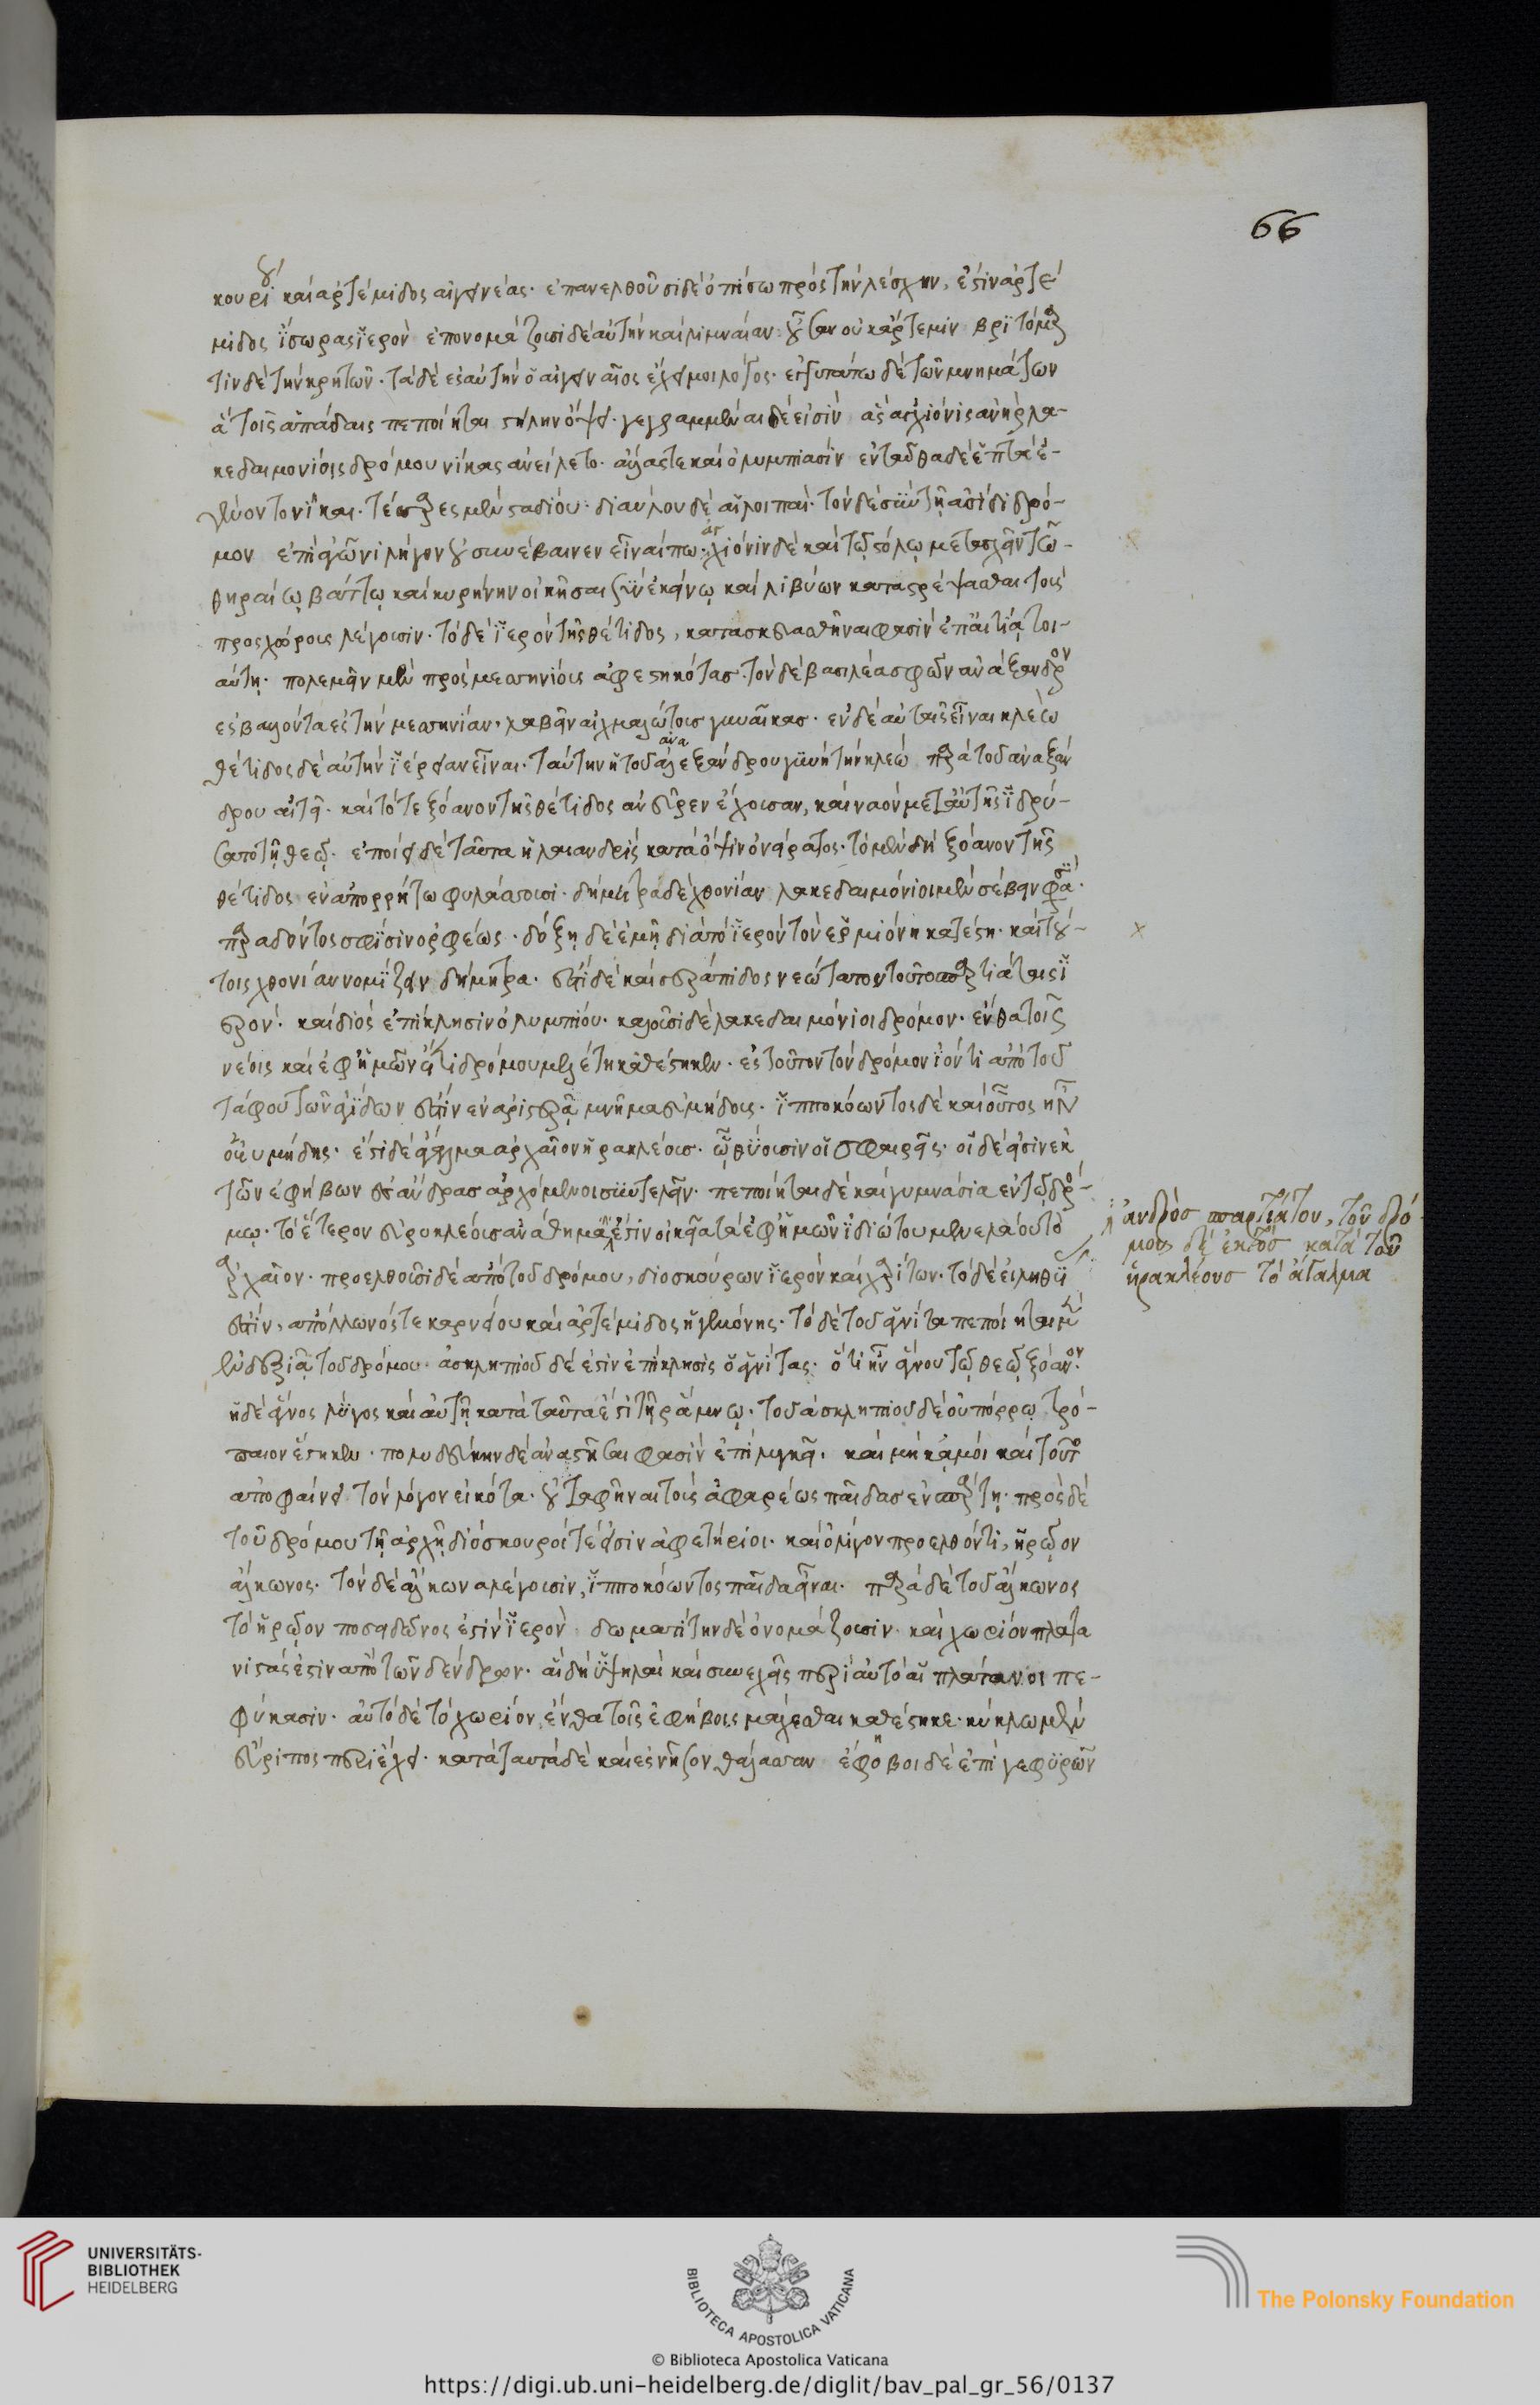 66
κουρι καὶ ἀρτέμιδος αἰγιναίας· ἐπανελθοῦσι δὲ ὀπίσω πρὸς τὴν λέσχην, ἐστὶν ἀρτέ-
μιδος ἰσώρας ἱερὸν ἐπονομάζουσι δὲ αὐτὴν καὶ λιμναίαν· οὖσαν οὐκ ἄρτεμιν βριτόμαρ
τιν δὲ τὴν κρητῶν· τὰ δὲ ἐς αὐτὴν ὁ αἰγιναῖος ἔχει μοι λόγος· ἐγγυτάτω δὲ τῶν μνημάτων
ἃ τοῖς ἀπάδαις πεποίηται στήλην ὄψει· γεγραμμέναι δέ εἰσιν ἃς ἀγχίονις ἀνὴρ λα-
κεδαιμόνιος δρόμου νίκας ἀνείλετο· ἄλλας τε καὶ ὀλυμπιάσιν ἐνταῦθα δὲ ἑπτὰ ἐ-
γένοντο νῖκαι· τέσσαρες μὲν σταδίου· διαύλου δὲ αἱ λοιπαί· τὸν δὲ σὺν τῇ ἀσπίδι δρό-
μον ἐπὶ ἀγῶνι λήγοντι οὐ συνέβαινεν εἶναί πω· χίονιν δὲ καὶ τῷ στόλῳ μετασχεῖν τῷ
θηραίῳ βάττῳ καὶ κυρήνην οἰκῆσαι σὺν ἐκείνῳ καὶ λιβύων καταστρέψασθαι τοὺς
προσχώρους λέγουσιν· τὸ δὲ ἱερὸν τῆς θέτιδος, κατασκευασθῆναι φασὶν ἐπ αἰτίᾳ τοι-
αύτῃ· πολεμεῖν μὲν πρὸς μεσσηνίους ἀφεστηκότας· τὸν δὲ βασιλέα σφῶν ἀνάξανδρον
ἐσβαλόντα ἐς τὴν μεσσηνίαν· λαβεῖν αἰχμαλώτους γυναῖκας· ἐν δὲ αὐταῖς εἶναι κλεὼ
θέτιδος δὲ αὐτὴν ἱέρειαν εἶναι· ταύτην ἡ τοῦ ἀλεξάνδρου γυνὴ τὴν κλεὼ παρὰ τοῦ ἀναξάν
ανα
δρου αἰτεῖ· καὶ τό τε ξόανον τῆς θέτιδος ἀνεῦρεν ἔχουσαν, καὶ ναὸν μετ αὐτῆς ἱδρύ-
σατο τῇ θεῷ· ἐποίει δὲ ταῦτα ἡ λαιανδρὶς κατὰ ὄψιν ὀνείρατος· τὸ μὲν δὴ ξόανον τῆς
θέτιδος ἐν ἀπορρήτῳ φυλάσσουσι· δήμητρα δὲ χθονίαν λακεδαιμόνιοι μὲν σέβειν φασὶ·
παραδόντος σφίσιν ὀρφέως· δόξῃ δὲ ἐμῇ διὰ τὸ ἱερὸν τὸ ἐν ἑρμιόνῃ κατέστη· καὶ τού-
τοις χθονίαν νομίζειν δήμητρα· ἐστὶ δὲ καὶ σεράπιδος νεώτατον τοῦτο σπαρτιάταις ἱ
ερὸν· καὶ διὸς ἐπίκλησιν ὀλυμπίου· καλοῦσι δὲ λακεδαιμόνιοι δρόμον· ἔνθα τοῖς
νέοις καὶ ἐφ ἡμῶν ἔτι δρόμου μελέτη καθέστηκεν· ἐς τοῦτον τὸν δρόμον ἰόντι ἀπὸ τοῦ
τάφου τῶν ἀγιδῶν ἐστὶν ἐν ἀριστερᾷ μνῆμα εὐμήδους· ἱπποκόωντος δὲ καὶ οὗτος ἦν
ὁ εὐμήδης· ἔστι δὲ ἄγαλμα ἀρχαῖον ἡρακλέους· ᾧ θύουσιν οἱ σφαιρεῖς· οἱ δέ εἰσιν ἐκ
τῶν ἐφήβων ἐς ἄνδρας ἀρχόμενοι συντελεῖν· πεποίηται δὲ καὶ γυμνάσια ἐν τῷ δρό-
μῳ· τὸ ἕτερον εὐρυκλέους ἀνάθημα ἔστιν οἰκία τὰ ἐφ ἡμῶν ἰδιώτου μενελάου τὸ
ἀρχαῖον· προελθοῦσι δὲ ἀπὸ τοῦ δρόμου, διοσκούρων ἱερὸν καὶ χαρίτων· τὸ δὲ εἰληθυί
ἐστὶν, ἀπόλλωνός τε καρνείου καὶ ἀρτέμιδος ἡγεμόνης· τὸ δὲ τοῦ ἀγνίτα πεποίηται μὲν
ἐν δεξιᾷ τοῦ δρόμου· ἀσκληπιοῦ δέ ἐστιν ἐπίκλησις ὁ ἀγνίτας· ὅτι ἦν ἄγνου τῷ θεῷ ξόανον·
ἡ δὲ ἄγνος λύγος καὶ αὐτὴ κατὰ ταῦτα ἐστὶ τῇ ῥάμνῳ· τοῦ ἀσκληπιοῦ δὲ οὐ πόρρω τρό-
παιον ἕστηκεν· πολυδεύκην δὲ ἀναστῆσαι φασὶν ἐπὶ λυγκεῖ· καὶ μή κἀμοὶ καὶ τοῦτο
ἀποφαίνει τὸν λόγον εἰκότα· οὐ ταφῆναι τοὺς ἀφαρέως παῖδας ἐν σπάρτῃ· πρὸς δὲ
τοῦ δρόμου τῇ ἀρχῇ διόσκουροί τέ εἰσιν ἀφετήριοι· καὶ ὀλίγον προελθόντι, ἡρῷον
ἄλκωνος· τὸν δὲ ἄλκωνα λέγουσιν, ἱπποκόωντος παῖδα εἶναι· παρὰ δὲ τοῦ ἄλκωνος
τὸ ἡρῷον ποσειδῶνος ἐστὶν ἱερὸν δωματίτην δὲ ὀνομάζουσιν· καὶ χωρίον πλατα
νιστάς ἐστιν ἀπὸ τῶν δένδρων· αἳ δὴ ὑψηλαὶ καὶ συνεχεῖς περὶ αὐτὸ αἱ πλάτανοι πε-
φύκασιν· αὐτὸ δὲ τὸ χωρίον, ἔνθα τοῖς ἐφήβοις μάχεσθαι καθέστηκε· κύκλῳ μὲν
εὔριπος περιέχει· κατὰ ταυτὰ δὲ καὶ εἰ νῆσον θάλασσαν ἔφηβοι δὲ ἐπὶ γεφυρῶν
ἀνδρὸσ σπαρτιάτου, τοῦ δρό-
μου δὲ ἐκτὸσ κατὰ τοῦ
ἡρακλέουσ τὸ ἄγαλμα
UNIVERSITÄTS-
BIBLIOTHEK
HEIDELBERG
BIBLIOTECA APOSTOLICA VATICANA
The Polonsky Foundation
© Biblioteca Apostolica Vaticana
https://digi.ub.uni-heidelberg.de/diglit/bav_pal_gr_56/0137